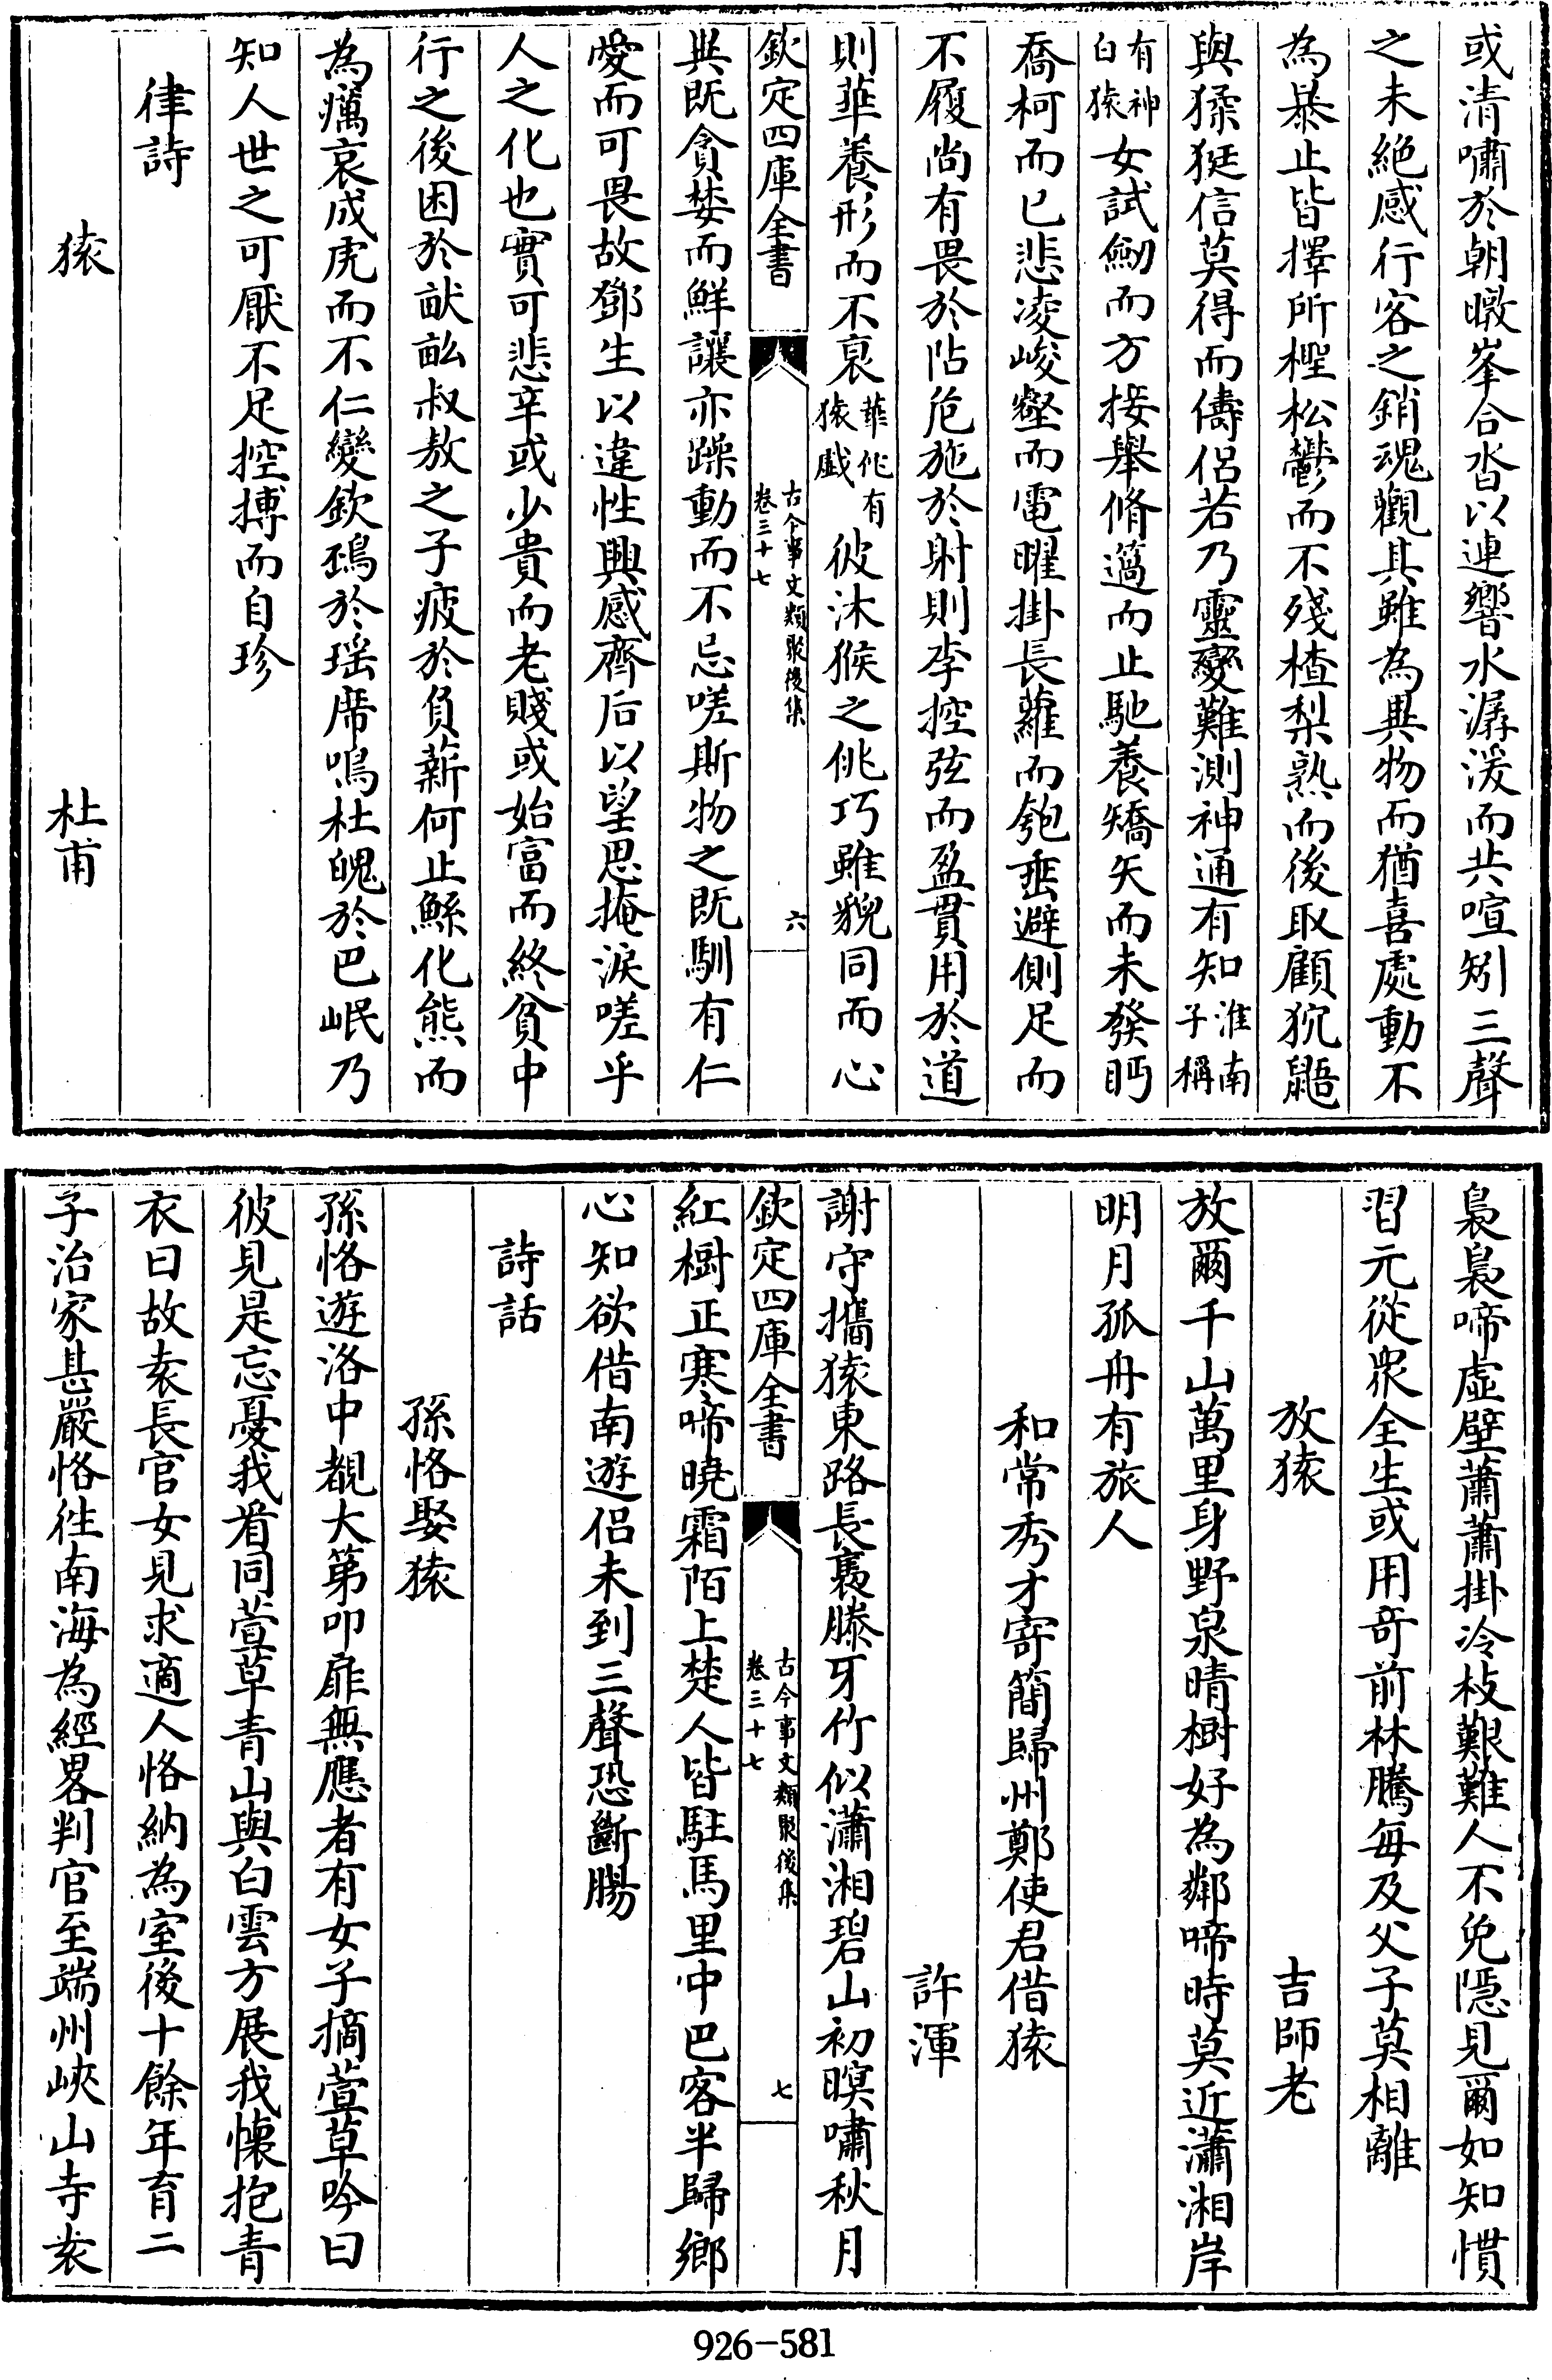 或清嘯於朝暾峯合沓以連響水潺湲而共喧矧三聲
之未絶感行客之銷魂觀其雖為異物而猶喜處動不
為暴止皆擇所樫松鬱而不殘楂梨熟而後取顧狖鼯
與猱狿信莫得而儔侣若乃靈變難測神通有知淮南子稱
有神白猿女試劒而方接舉脩𥳑而止馳養矯矢而未發眄
喬柯而已悲凌峻壑而電曜掛長蘿而匏垂避側足而
不履尚有畏於阽危施於射則李控弦而盈貫用於道
則華養形而不衰華佗有猿戯彼沐猴之佻巧雖貌同而心
欽定四庫全書
古今事文類聚後集
卷三十七
六
異既貪婪而鮮讓亦躁動而不忌嗟斯物之既馴有仁
愛而可畏故鄧生以違性興感齊后以望思掩淚嗟乎
人之化也實可悲辛或少貴而老賤或始富而終貧中
行之後困於畎畝叔敖之子疲於負薪何止鯀化熊而
為癘哀成虎而不仁變欽䲹於瑶席鳴杜魄於巴岷乃
知人世之可厭不足控搏而自珍
律詩
猿
杜甫
裊裊啼虛壁蕭蕭掛冷枝艱難人不免隱見爾如知慣
習元從衆全生或用竒前林騰每及父子莫相離
放猿
吉師老
放爾千山萬里身野泉晴樹好為鄰啼時莫近瀟湘岸
明月孤舟有旅人
和常秀才寄簡歸州鄭使君借猿
許渾
謝守攜猿東路長裊藤牙竹似瀟湘碧山初暝嘯秋月
欽定四庫全書
古今事文類聚後集
卷三十七
七
紅樹正寒啼曉霜陌上楚人皆駐馬里中巴客半歸鄉
心知欲借南遊侣未到三聲恐斷腸
詩話
孫恪娶猿
孫恪遊洛中覩大第叩扉無應者有女子摘萱草吟曰
彼見是忘憂我㸔同萱草青山與白雲方展我懐抱青
衣曰故袁長官女見求適人恪納為室後十餘年育二
子治家甚嚴恪往南海為經畧判官至端州峽山寺袁
926-581